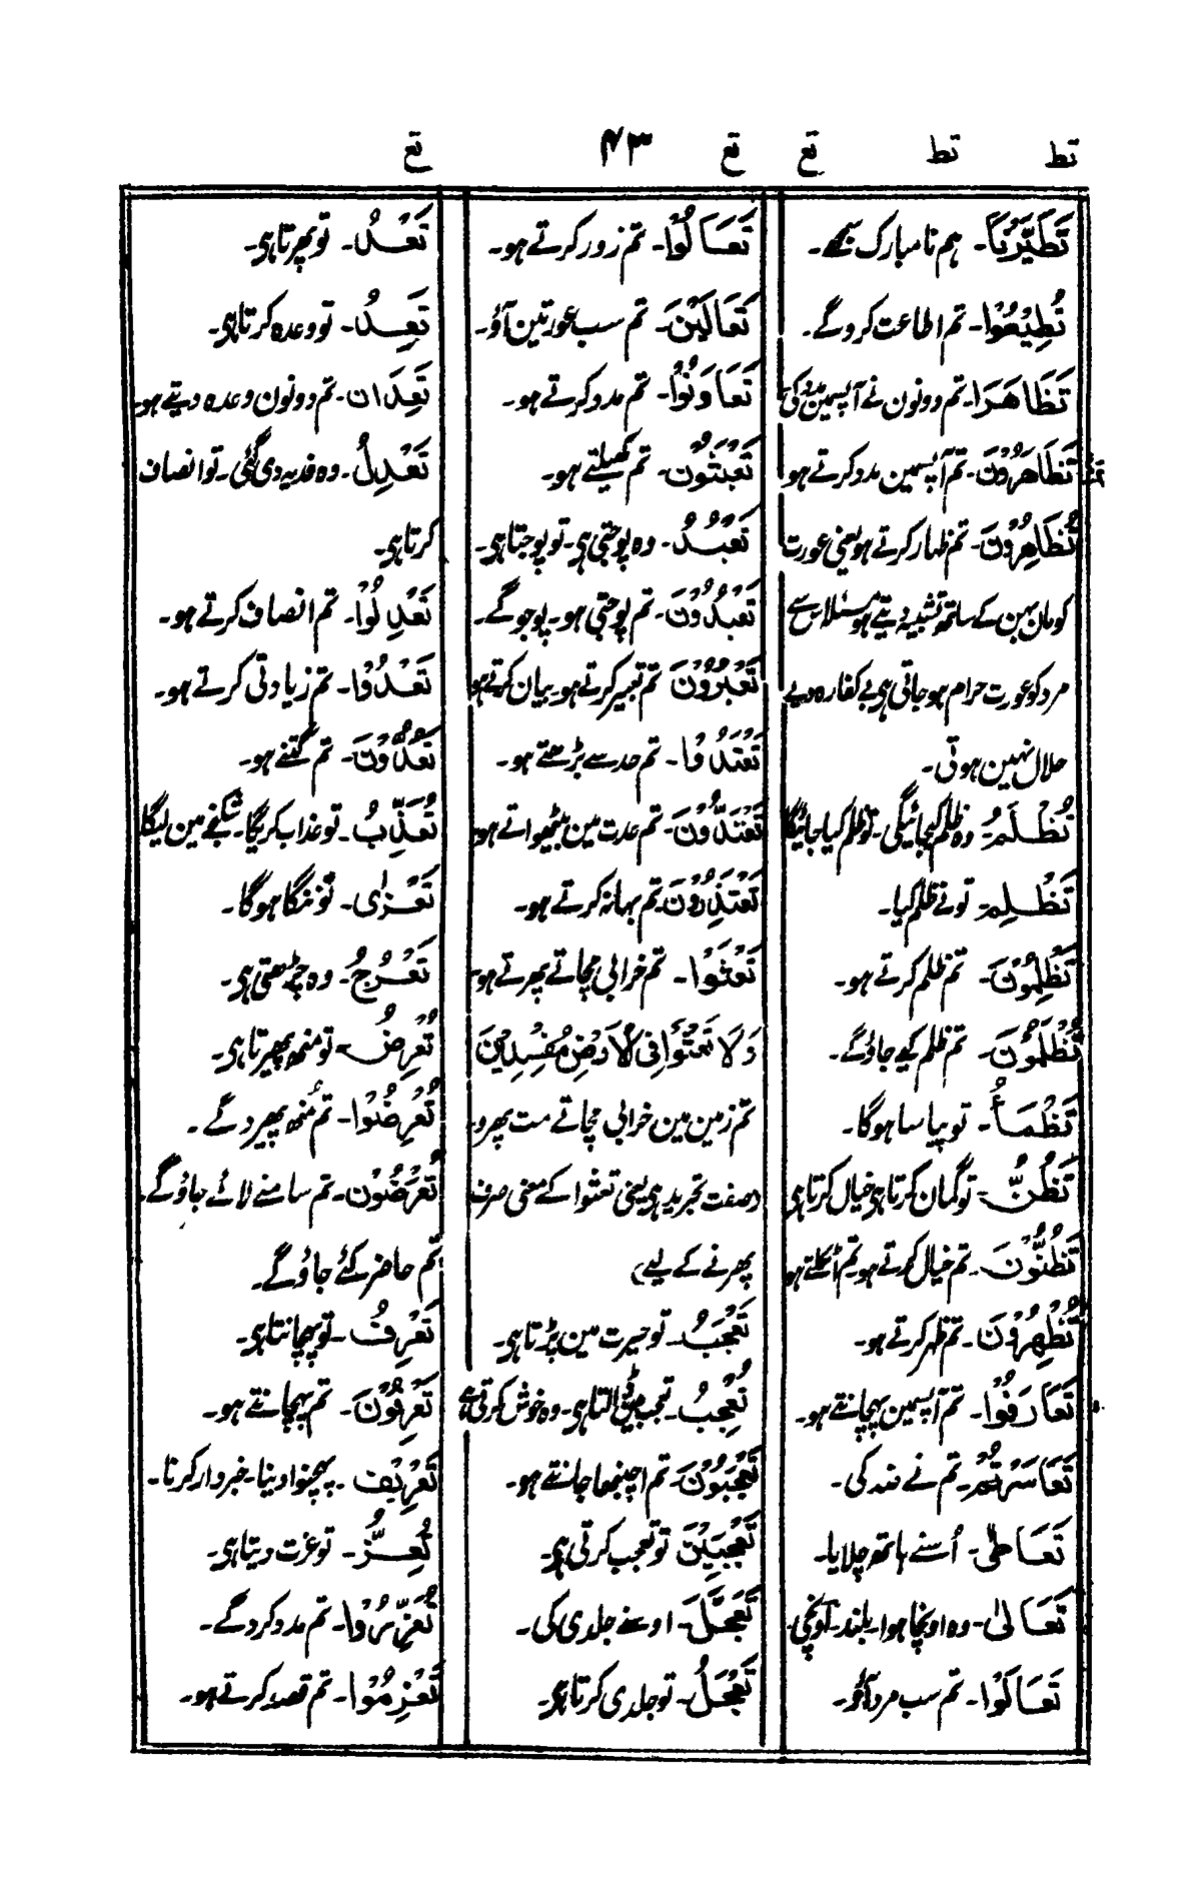 تط تط تع تع ۴۳ تع
تَطَيَّرْنَا۔ ہم نامبارک سمجھے۔
تُطِيْعُوْا۔ تم اطاعت کروگے۔
تَظَاهَرَا۔ تم دونون نے آپسمین مدد کی
تَظَاهَرُوْنَ۔ تم آپسمین مدد کرتے ہو
تُظَاهِرُوْنَ۔ تم ظہار کرتے ہو یعنی عورت
کو مان بہن کے ساتھ تشبیہ دیتے ہو مسئلہ اس سے
مرد کو عورت حرام ہو جاتی ہی بے کفارہ دیے
حلال نہین ہوتی۔
تُظْلَمُ۔ وہ ظلم کیجائیگی۔ تو ظلم کیا جائیگا
تَظْلِمْ۔ تو نے ظلم کیا۔
تَظْلِمُوْنَ۔ تم ظلم کرتے ہو۔
تُظْلَمُوْنَ۔ تم ظلم کیے جاؤگے۔
تَظْمَأُ۔ تو پیاسا ہوگا۔
تَظُنُّ۔ تو گمان کرتا ہی خیال کرتا ہی
تَظُنُّوْنَ۔ تم خیال کرتے ہو تم اٹکلتے ہو
تُظْهِرُوْنَ۔ تم ظہر کرتے ہو۔
تَعَارَفُوْا۔ تم آپسمین پہچانتے ہو۔
تَعَاسَرْتُمْ۔ تم نے ضد کی۔
تَعَاطٰى۔ اُسنے ہاتھ چلایا۔
تَعَالٰى۔ وہ اونچا ہوا۔ بلند۔ اونچی۔
تَعَالَوْا۔ تم سب مرد آؤ۔
تَعَالُوْا۔ تم زور کرتے ہو۔
تَعَالَيْنَ۔ تم سب عورتین آؤ۔
تَعَاوَنُوْا۔ تم مدد کرتے ہو۔
تَعْبَثُوْن۔ تم کھیلتے ہو۔
تَعْبُدُ۔ وہ پوجتی ہی۔ تو پوجتا ہی۔
تَعْبُدُوْنَ۔ تم پوجتی ہو۔ پوجوگے۔
تَعْبُرُوْنَ تم تعبیر کرتے ہو۔ بیان کرتے ہو
تَعْتَدُوْا۔ تم حد سے بڑھتے ہو۔
تَعْتَدُّوْنَ۔ تم عدت مین بیٹھواتے ہو۔
تَعْتَذِرُوْنَ۔ تم بہانہ کرتے ہو۔
تَعْثَوْا۔ تم خرابی مچاتے پھرتے ہو۔
وَلَا تَعْثَوْا فِى الْاَرْضِ مُفْسِدِيْنَ
تم زمین مین خرابی مچاتے مت پھرو۔
(صفت تجرید ہی یعنی تعثوا کے معنی صرف
پھرنے کے لیے)
تَعْجَبُ۔ تو حیرت مین پڑتا ہی۔
تُعْجِبُ۔ تعجب مین ڈالتا ہی۔ وہ خوش کرتی ہے
تَعْجَبُوْنَ۔ تم اچنبھا جانتے ہو۔
تَعْجَبِيْنَ تو تعجب کرتی ہی۔
تَعَجَّلَ۔ اوسنے جلدی کی۔
تَعْجَلُ۔ تو جلدی کرتا ہی۔
تَعْدُ۔ تو پھرتا ہی۔
تَعِدُ۔ تو وعدہ کرتا ہی۔
تَعِدَان۔ تم دونون وعدہ دیتے ہو۔
تَعْدِلُ۔ وہ فدیہ دی گئی۔ تو انصاف
کرتا ہی۔
تَعْدِلُوْا۔ تم انصاف کرتے ہو۔
تَعْدُوْا۔ تم زیادتی کرتے ہو۔
تَعُدُّوْنَ۔ تم گنتے ہو۔
تُعَذِّبُ۔ تو عذاب کریگا۔ شکنجے مین لیگا
تَعْرٰى۔ تو ننگا ہوگا۔
تَعْرُجُ۔ وہ چڑھتی ہی۔
تُعْرِضُ۔ تو منھ پھیرتا ہی۔
تُعْرِضُوْا۔ تم مُنھ پھیروگے۔
تُعْرَضُوْن۔ تم سامنے لائے جاؤگے۔
تم حاضر کئے جاؤگے۔
تَعْرِفُ۔ تو پہچانتا ہی۔
تَعْرِفُوْنَ۔ تم پہچانتے ہو۔
تَعْرِيْف۔ پہچنوا دینا۔ خبردار کرنا۔
تُعِزُّ۔ تو عزت دیتا ہی۔
تُعَزِّرُوْا۔ تم مدد کروگے۔
تَعْزِمُوْا۔ تم قصد کرتے ہو۔